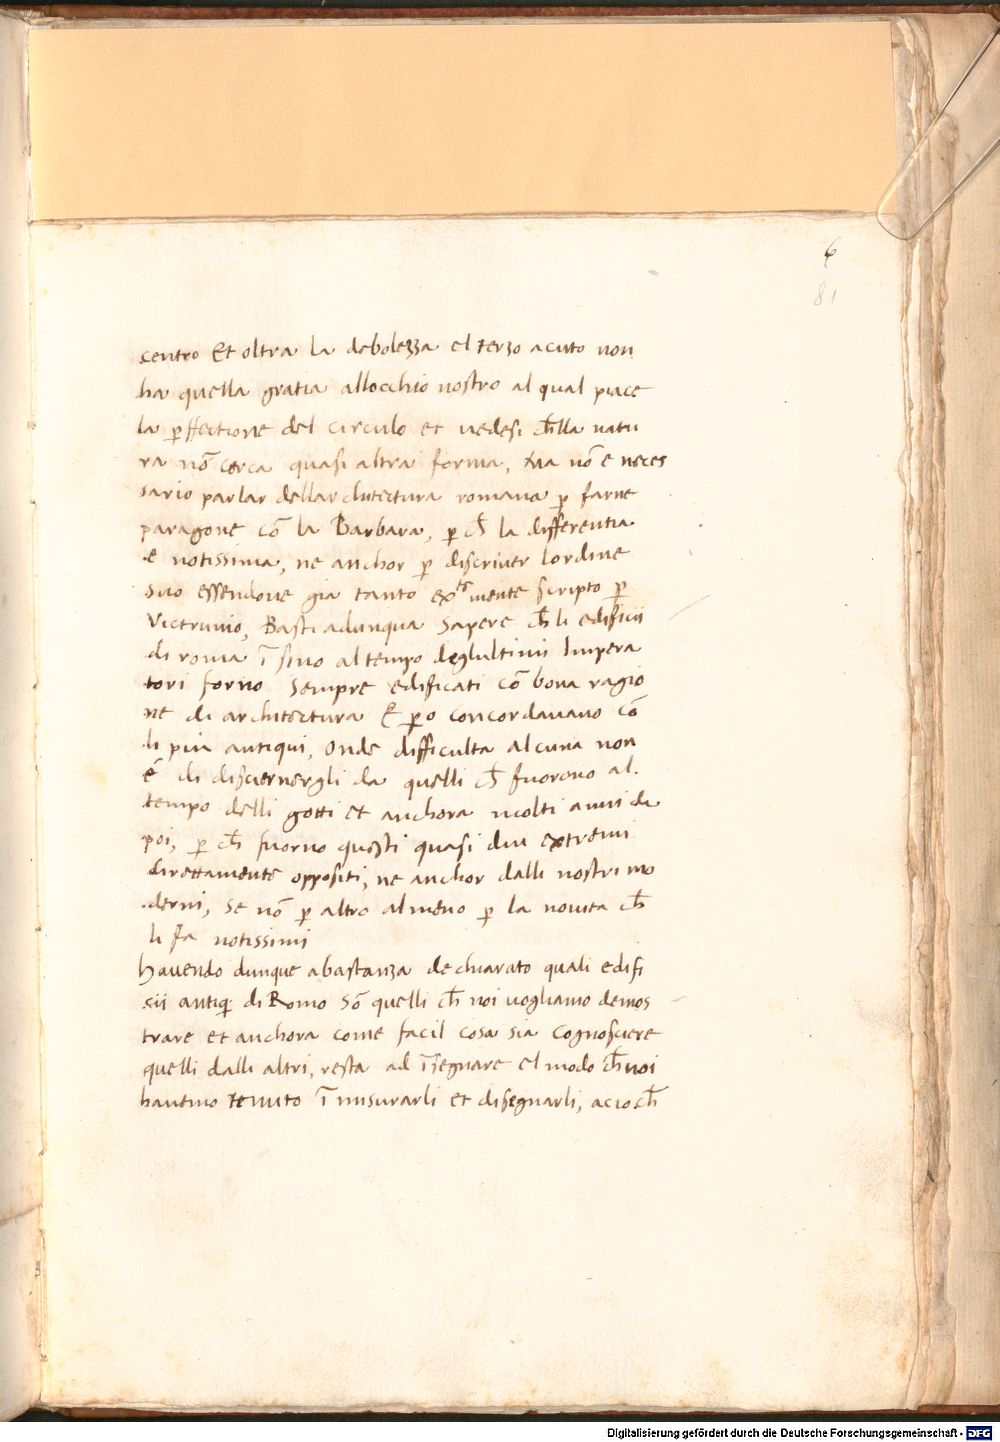 6
81
centro Et oltra la debolezza el terzo acuto non
ha quella gratia allocchio nostro al qual piace
la p̄ffectione del circulo et uedesi ch̄lla natu
ra nō cerca quasi altra forma, Ma nō e neces
sario parlar dellarchitectura romana p̄ farne
paragone cō la Barbara, p̄ ch̄ la differentia
e notissima, ne anchor p̄ discriuer lordine
suo essendone gia tanto exᵗᵉmente scripto p̄
Victruuio, Basti adunqua Sapere ch̄ li edificii
di roma ī sino al tempo deglultimi Impera
tori forno Sempre edificati cō bona ragio
ne di architectura E p̄o concordauano cō
li piu antiqui, Onde difficulta alcuna non
é di discernergli da quelli ch̄ fuorono al.
tempo delli gotti et anchora molti anni di
poi, p̄ ch̄ fuorno questi quasi dui extremi
direttamente oppositi, ne anchor dalli nostri mo
derni, Se nō p̄ altro almeno p̄ la nouita ch̄
li fa notissimi
Hauendo dunque abastanza dechiarato quali edifi
cii antiq; di Roma Sō quelli ch̄ noi uogliamo demos
trare et anchora come facil cosa sia cognoscere
quelli dalli altri, resta ad īsegnare el modo ch̄ noi
hauemo tenuto ī misurarli et disegnarli, acio ch̄
Digitalisierung gefördert durch die Deutsche Forschungsgemeinschaft - DFG